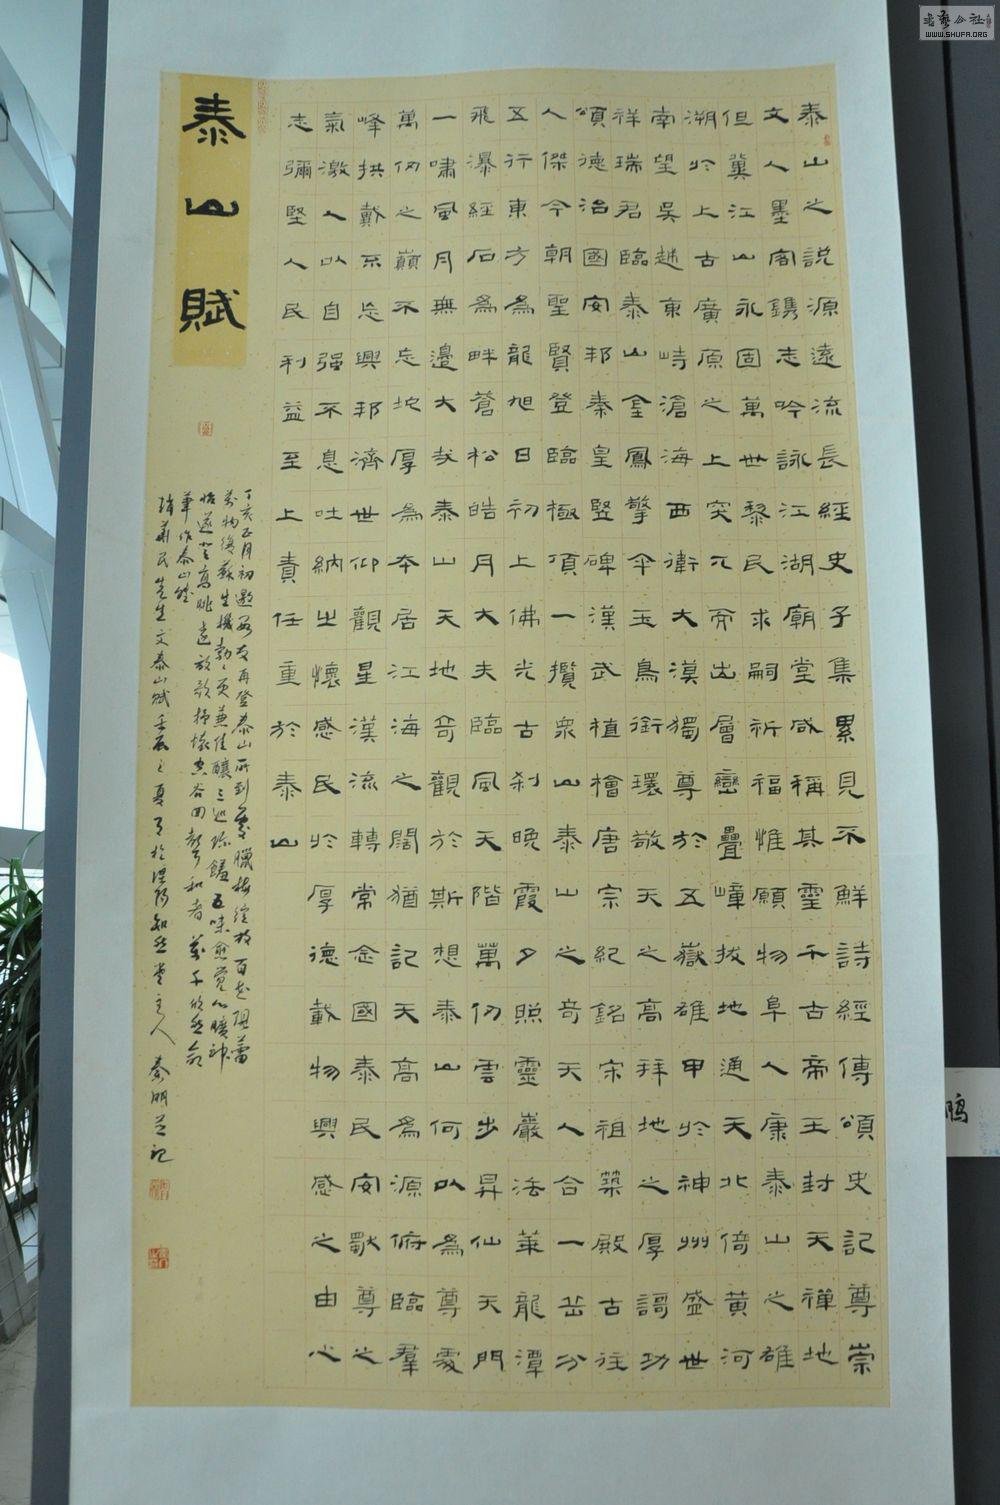 泰山賦
泰山之說源遠流長經史子集累見不鮮詩經傳頌史記尊崇
文人墨客鐫志吟詠江湖廟堂咸稱其靈千古帝王封天禪地
但冀江山永固萬世黎民求嗣祈福惟願物阜人康泰山之雄
溯於上古廣原之上突兀而出層巒疊嶂拔地通天北倚黃河
南望吳越東峙滄海西衛大漠獨尊於五嶽雄甲於神州盛世
祥瑞君臨泰山金鳳擎伞玉鳥銜環敬天之高拜地之厚謌功
頌德治國安邦秦皇豎碑漢武植檜唐宗紀銘宋祖築殿古往
人傑今朝聖賢登臨極頂一攬眾山泰山之奇天人合一岳分
五行東方為龍旭日初上佛光古刹晚霞夕照靈巖法萊龍潭
飛瀑經石為畔蒼松皓月大夫臨風天階萬仞雲步昇仙天門
一嘯風月無邊大哉泰山天地奇觀於斯想泰山何以為尊處
萬仞之巔不忘坨厚為本居江海之闊猶記天高為源俯臨羣
峰拱戴不忘興邦濟世仰觀星漢流轉常念國泰民安歌尊之
氣激人以自强不息吐納之懷感民於厚德載物興感之由心
志彌堅人民利益至上責任重於泰山
丁亥正月初邀友再登泰山所到處臘梅綻放百花阻蕾
萬物復蘇生機勃勃更兼佳釀三巡珍饈五味愈覺心曠神
怡遂登高眺遠放歌抒懷空谷回聲和者萬千欣然命
筆作泰山賦
民先生文泰山賦壬辰之夏月於知堂主人秦朋並記
WWW.SHUFA.ORG
鵬